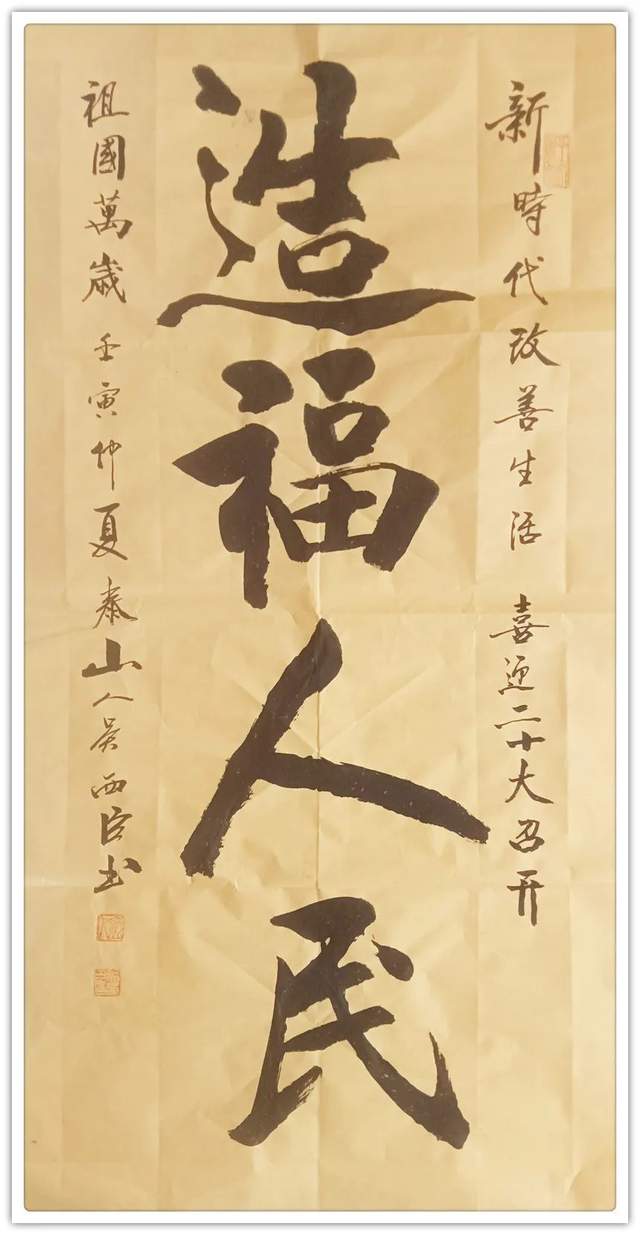 新時代改善生活 喜迎二十大召开
造福人民
祖國萬歲 壬寅仲夏泰山人吴西臣书